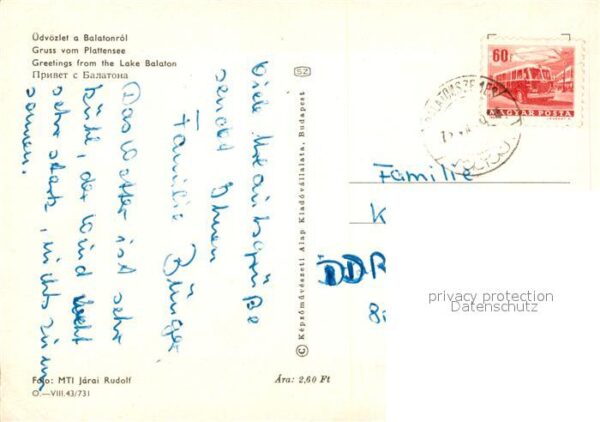 Üdvözlet a Balatonról
Gruss vom Plattensee
Greetings from the Lake Balaton
Привет с Балатона
Viele Urlaubsgrüße
sendet Ihnen
Familie Bünger
Das Wetter ist sehr
kühl, der Wind weht
sehr stark, nichts zum
sonnen.
Foto: MTI Járai Rudolf
O.—VIII.43/731
Ára: 2,60 Ft
SZ
© Képzőművészeti Alap Kiadóvállalata, Budapest
60f
MAGYAR POSTA
Familie
K
DDR
8
privacy protection
Datenschutz